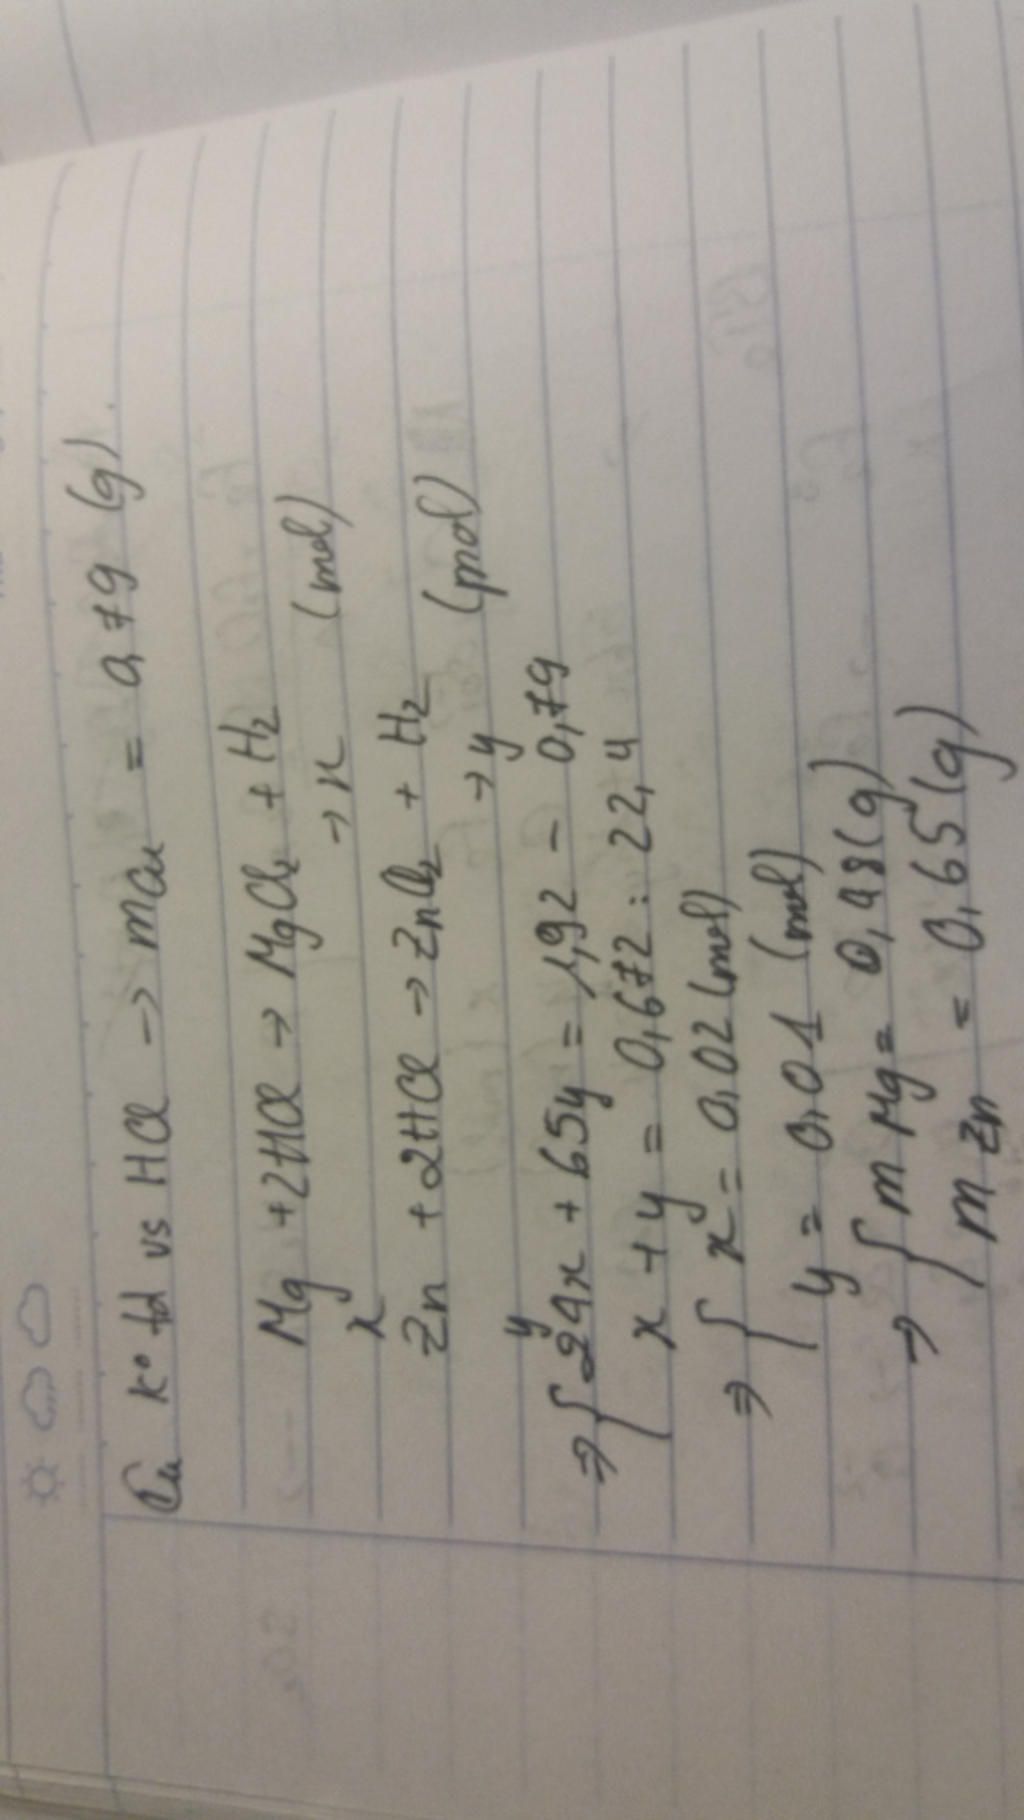 Cu k° td vs HCl → mCu = 0,79 (g).
Mg + 2HCl → MgCl2 + H2
x → x (mol)
Zn + 2HCl → ZnCl2 + H2
y → y (mol)
⇒ { 24x + 65y = 1,92 - 0,79
x + y = 0,672 : 22,4
⇒ { x = 0,02 (mol)
y = 0,01 (mol)
⇒ { m Mg = 0,48 (g)
m Zn = 0,65 (g)